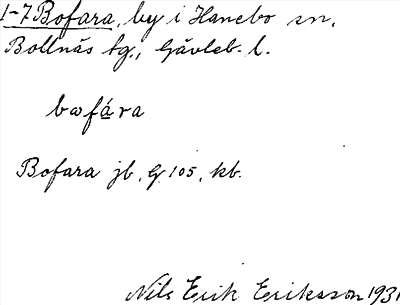 1-7 Bofara, by i Hanebo sn,
Bollnäs tg., Gävleb. l.
bωfára
Bofara jb, G 105, kb.
Nils Erik Eriksson 1931